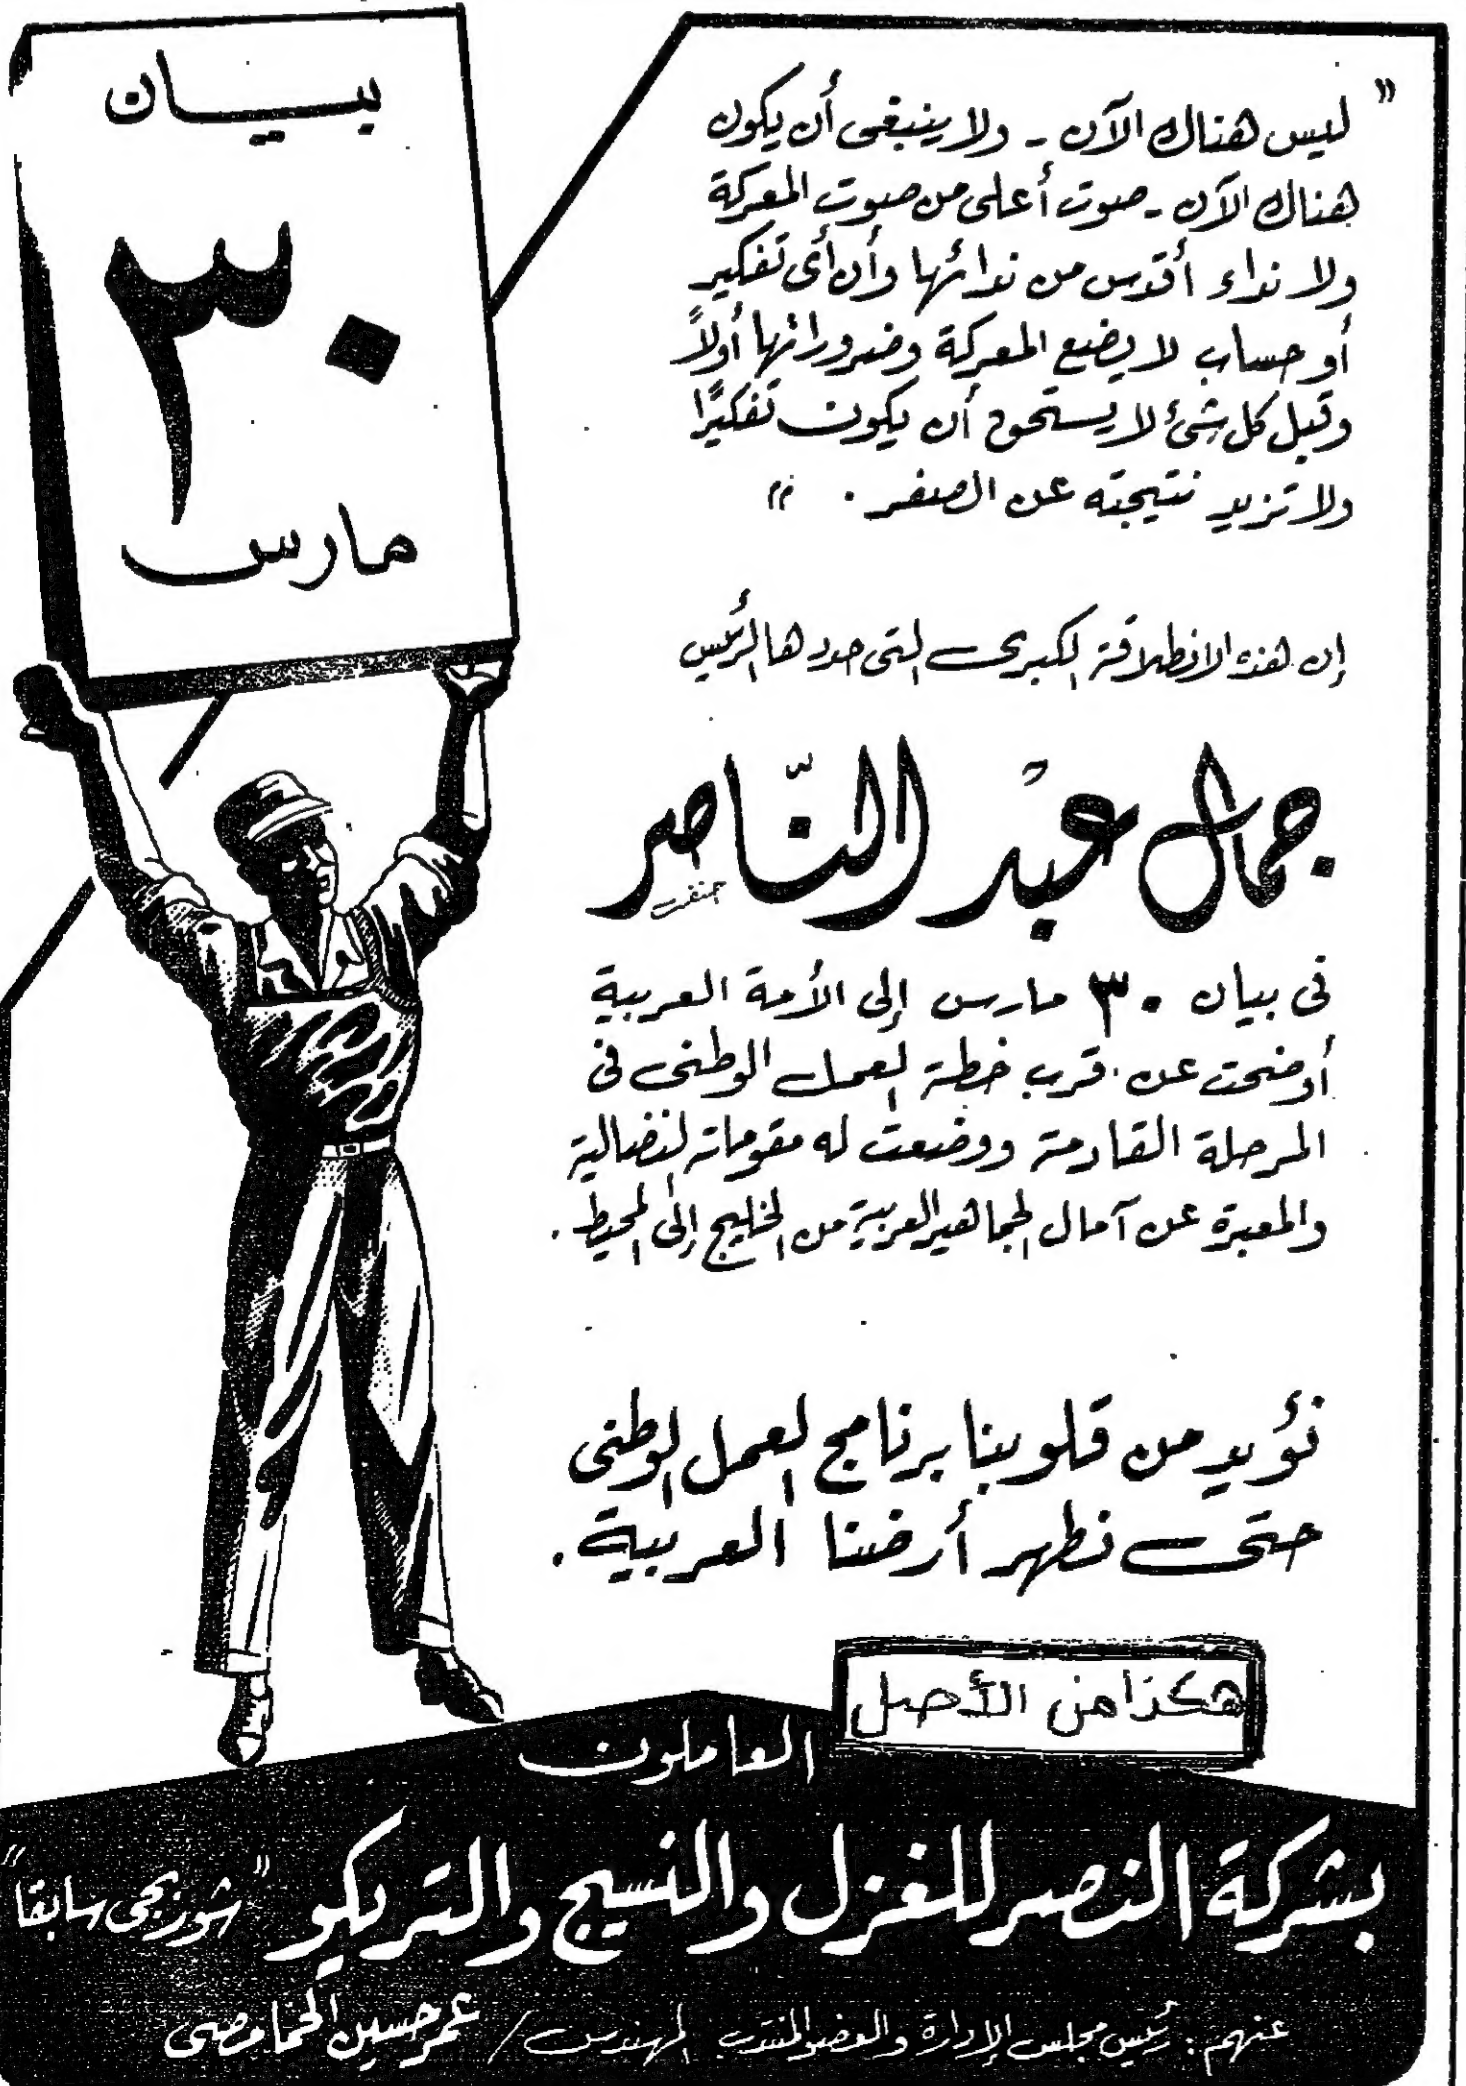 بيان
٣٠
مارس
" ليس هناك الآن - ولا ينبغى أن يكون
هناك الآن - صوت أعلى من صوت المعركة
ولا نداء أقدس من ندائها وأن أى تفكير
أو حساب لا يضع المعركة وضروراتها أولاً
وقبل كل شئ لا يستحق أن يكون تفكيرًا
ولا تزيد نتيجته عن الصفر . "
إن هذه الانطلاقة الكبرى التى حددها الرئيس
جمال عبد الناصر
فى بيان ٣٠ مارس إلى الأمة العربية
أوضحت عن قرب خطة العمل الوطنى فى
المرحلة القادمة ووضعت له مقوماته النضالية
والمعبرة عن آمال الجماهير العربية من الخليج إلى المحيط .
نؤيد من قلوبنا برنامج العمل الوطنى
حتى نطهر أرضنا العربية .
هكذا من الأصل
العاملون
بشركة النصر للغزل والنسيج والتريكو "شوربجى سابقا"
عنهم : رئيس مجلس الإدارة والعضو المنتدب المهندس / عمر حسين